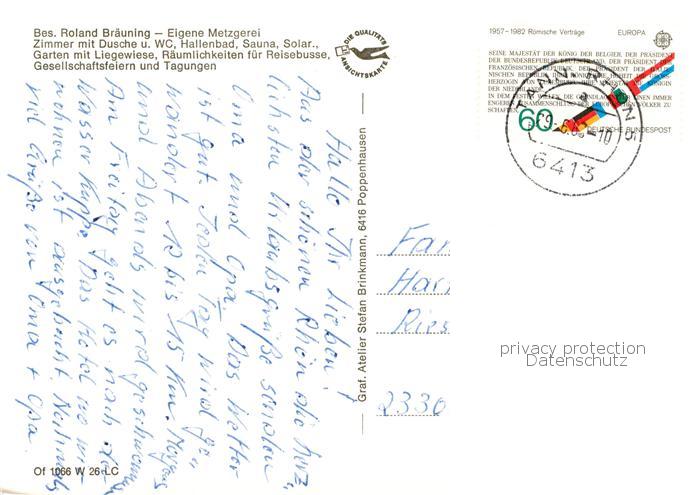 Bes. Roland Bräuning — Eigene Metzgerei
Zimmer mit Dusche u. WC, Hallenbad, Sauna, Solar.,
Garten mit Liegewiese, Räumlichkeiten für Reisebusse,
Gesellschaftsfeiern und Tagungen
DIE QUALITÄTS
ANSICHTSKARTE
1957–1982 Römische Verträge EUROPA
SEINE MAJESTÄT DER KÖNIG DER BELGIER, DER PRÄSIDENT
DER BUNDESREPUBLIK DEUTSCHLAND, DER PRÄSIDENT DER
FRANZÖSISCHEN REPUBLIK, DER PRÄSIDENT DER ITALIE-
NISCHEN REPUBLIK, IHRE KÖNIGLICHE HOHEIT
DER NIEDERLANDE
IN DEM FESTEN WILLEN, DIE GRUNDLAGEN EINEN IMMER
ENGEREN ZUSAMMENSCHLUSS DER EUROPÄISCHEN VÖLKER ZU
SCHAFFEN
60
DEUTSCHE BUNDESPOST
-10
6413
Hallo Ihr Lieben!
Aus der schönen Rhön die herz-
lichsten Urlaubsgrüße senden
Oma und Opa. Das Wetter
ist gut. Jeden Tag wird ge-
wandert 10 bis 15 Km. Morgens
und Abends wird geschwommen
Am Freitag geht es nach der
Wasserkuppe. Das Hotel wo wir
wohnen ist ausgebucht.
viel Grüße von Oma + Opa.
Graf. Atelier Stefan Brinkmann, 6416 Poppenhausen
Fam
Har
Ries
2330
privacy protection
Datenschutz
Of 1066 W 26-LC